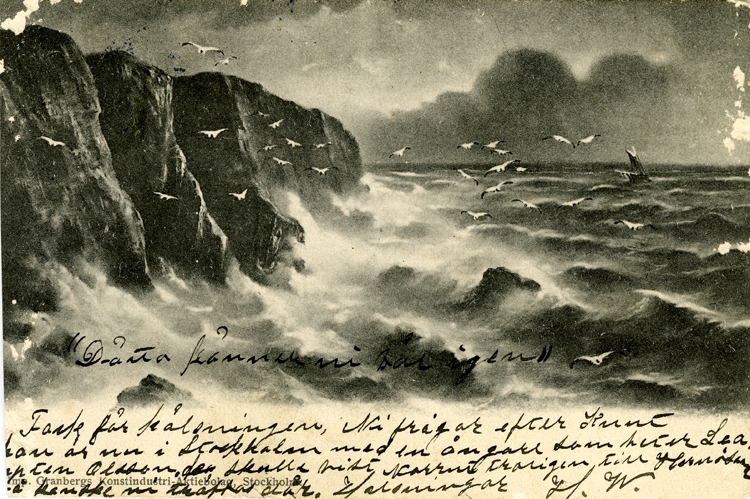 "Dåtta känner ni väl igen"
Tack för hälsningen, Ni frågar efter Knut
han är nu i Stockholm med en ångare som heter Lea
Kapten Olsson, den skulle visst komma troligen till Hernösa
Imp. Granbergs Konstindustri-Aktiebolag, Stockholm.
kanske ni träffas där. Hälsningar H. W.